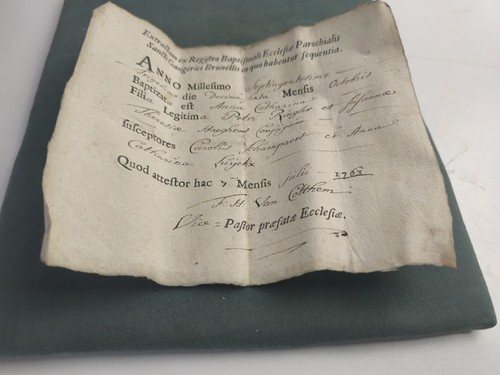 Extractum ex Registro Baptismali Ecclesiæ Parochialis
Sancti Gaugerici Bruxellis in quo habentur sequentia.
ANNO Millesimo Septingentesimo
Trigesimo die Decima Mensis Octobris
Baptizata est Anna Catharina
Filia Legitima Petri et Susannæ
Theresiæ Haeghens Conjugum
susceptores Carolus Schampaert et Anna
Catharina Luyckx
Quod attestor hac 7 Mensis Julii 1763
F. H. Van Cotthem
Vice = Pastor præfatæ Ecclesiæ.